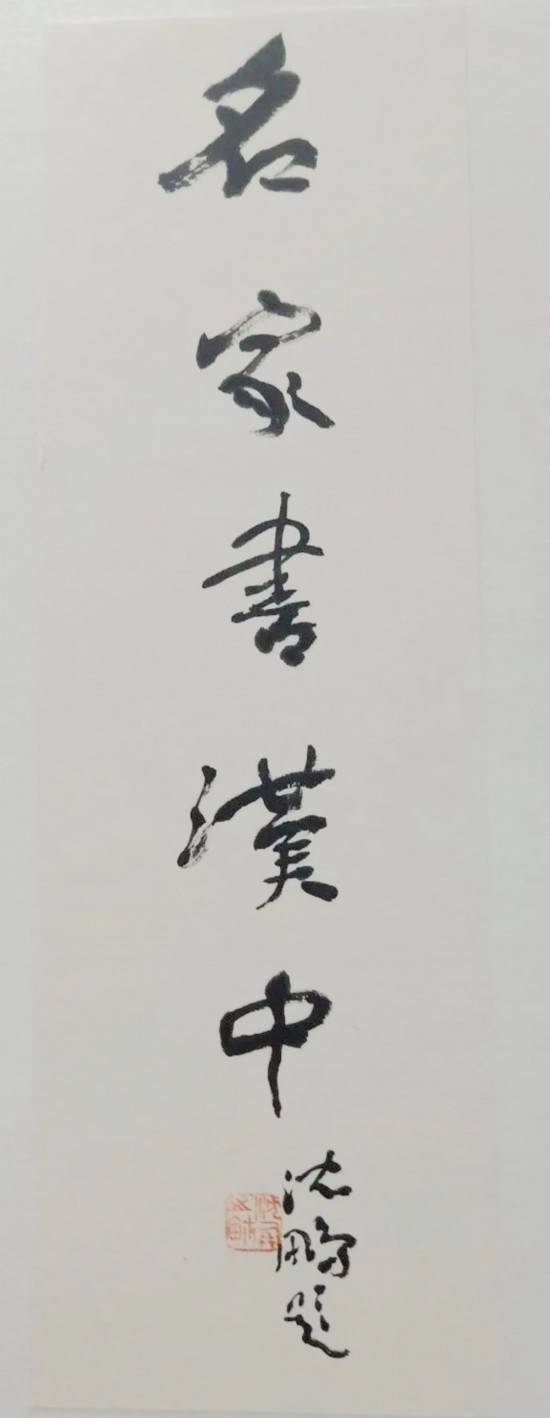 名家書漢中
沈鵬題